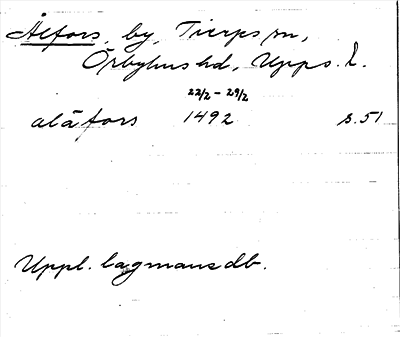 Ålfors, by, Tierps sn,
Örbyhus hd, Upps. l.
22/2 - 29/2
alåfors 1492 s. 51
Uppl. lagmansdb.